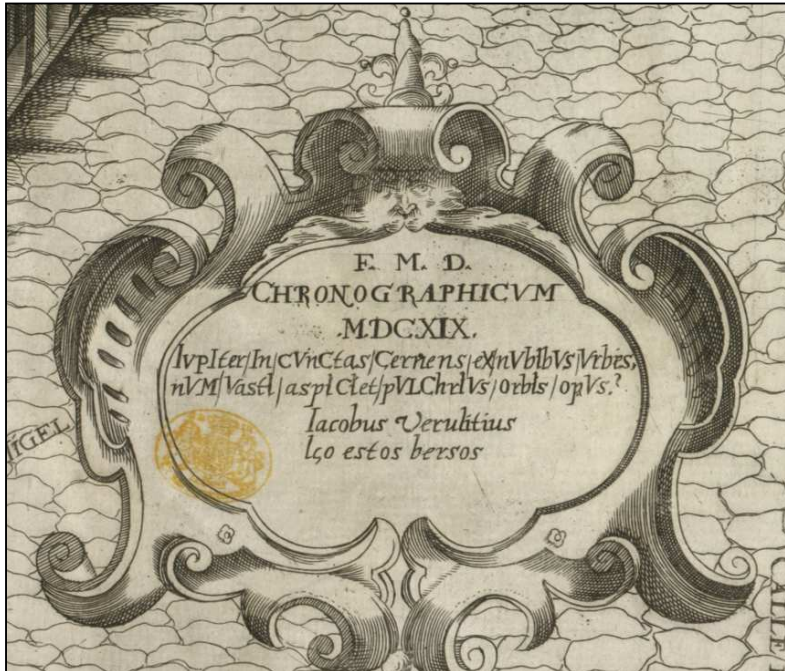 F. M. D.
CHRONOGRAPHICVM
.MDCXIX.
IvpIter/In/cVnCtas/Cernens/eX/nVbIbVs/Vrbes,
nVM/VastI/aspICIet/pVLChrIVs/OrbIs/opVs.?
Iacobus Verulitius
Iço estos bersos
IGEL
CALLE